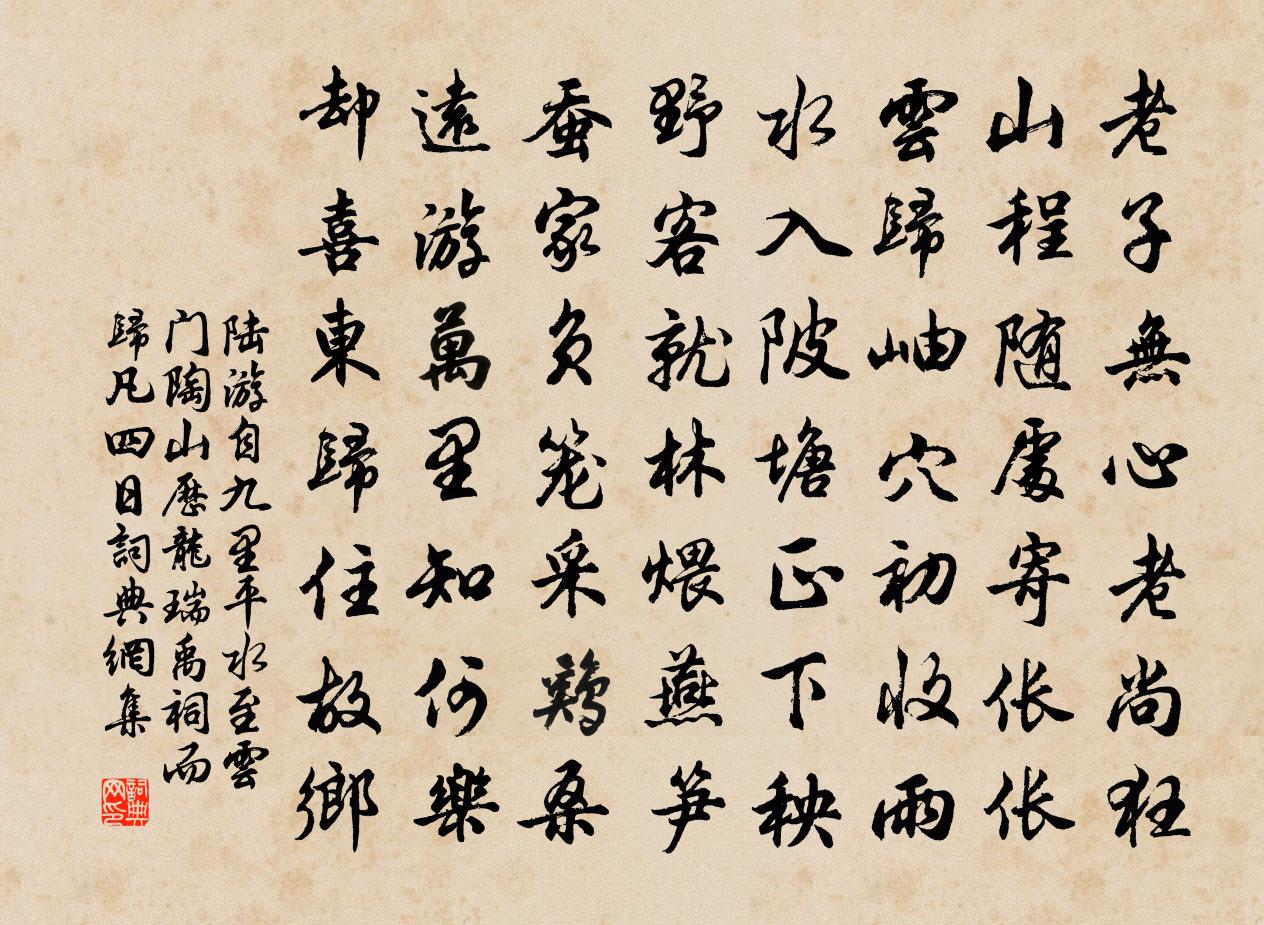 老子無心老尚狂
山程随處寄伥伥
雲歸岫穴初收雨
水入陂塘正下秧
野客就林煨燕笋
蚕家负笼采鷄桑
遠游萬里知何樂
却喜東歸住故鄉
陆游自九里平水至雲
门陶山歷龍瑞禹祠而
歸凡四日詞典網集
詞典网印